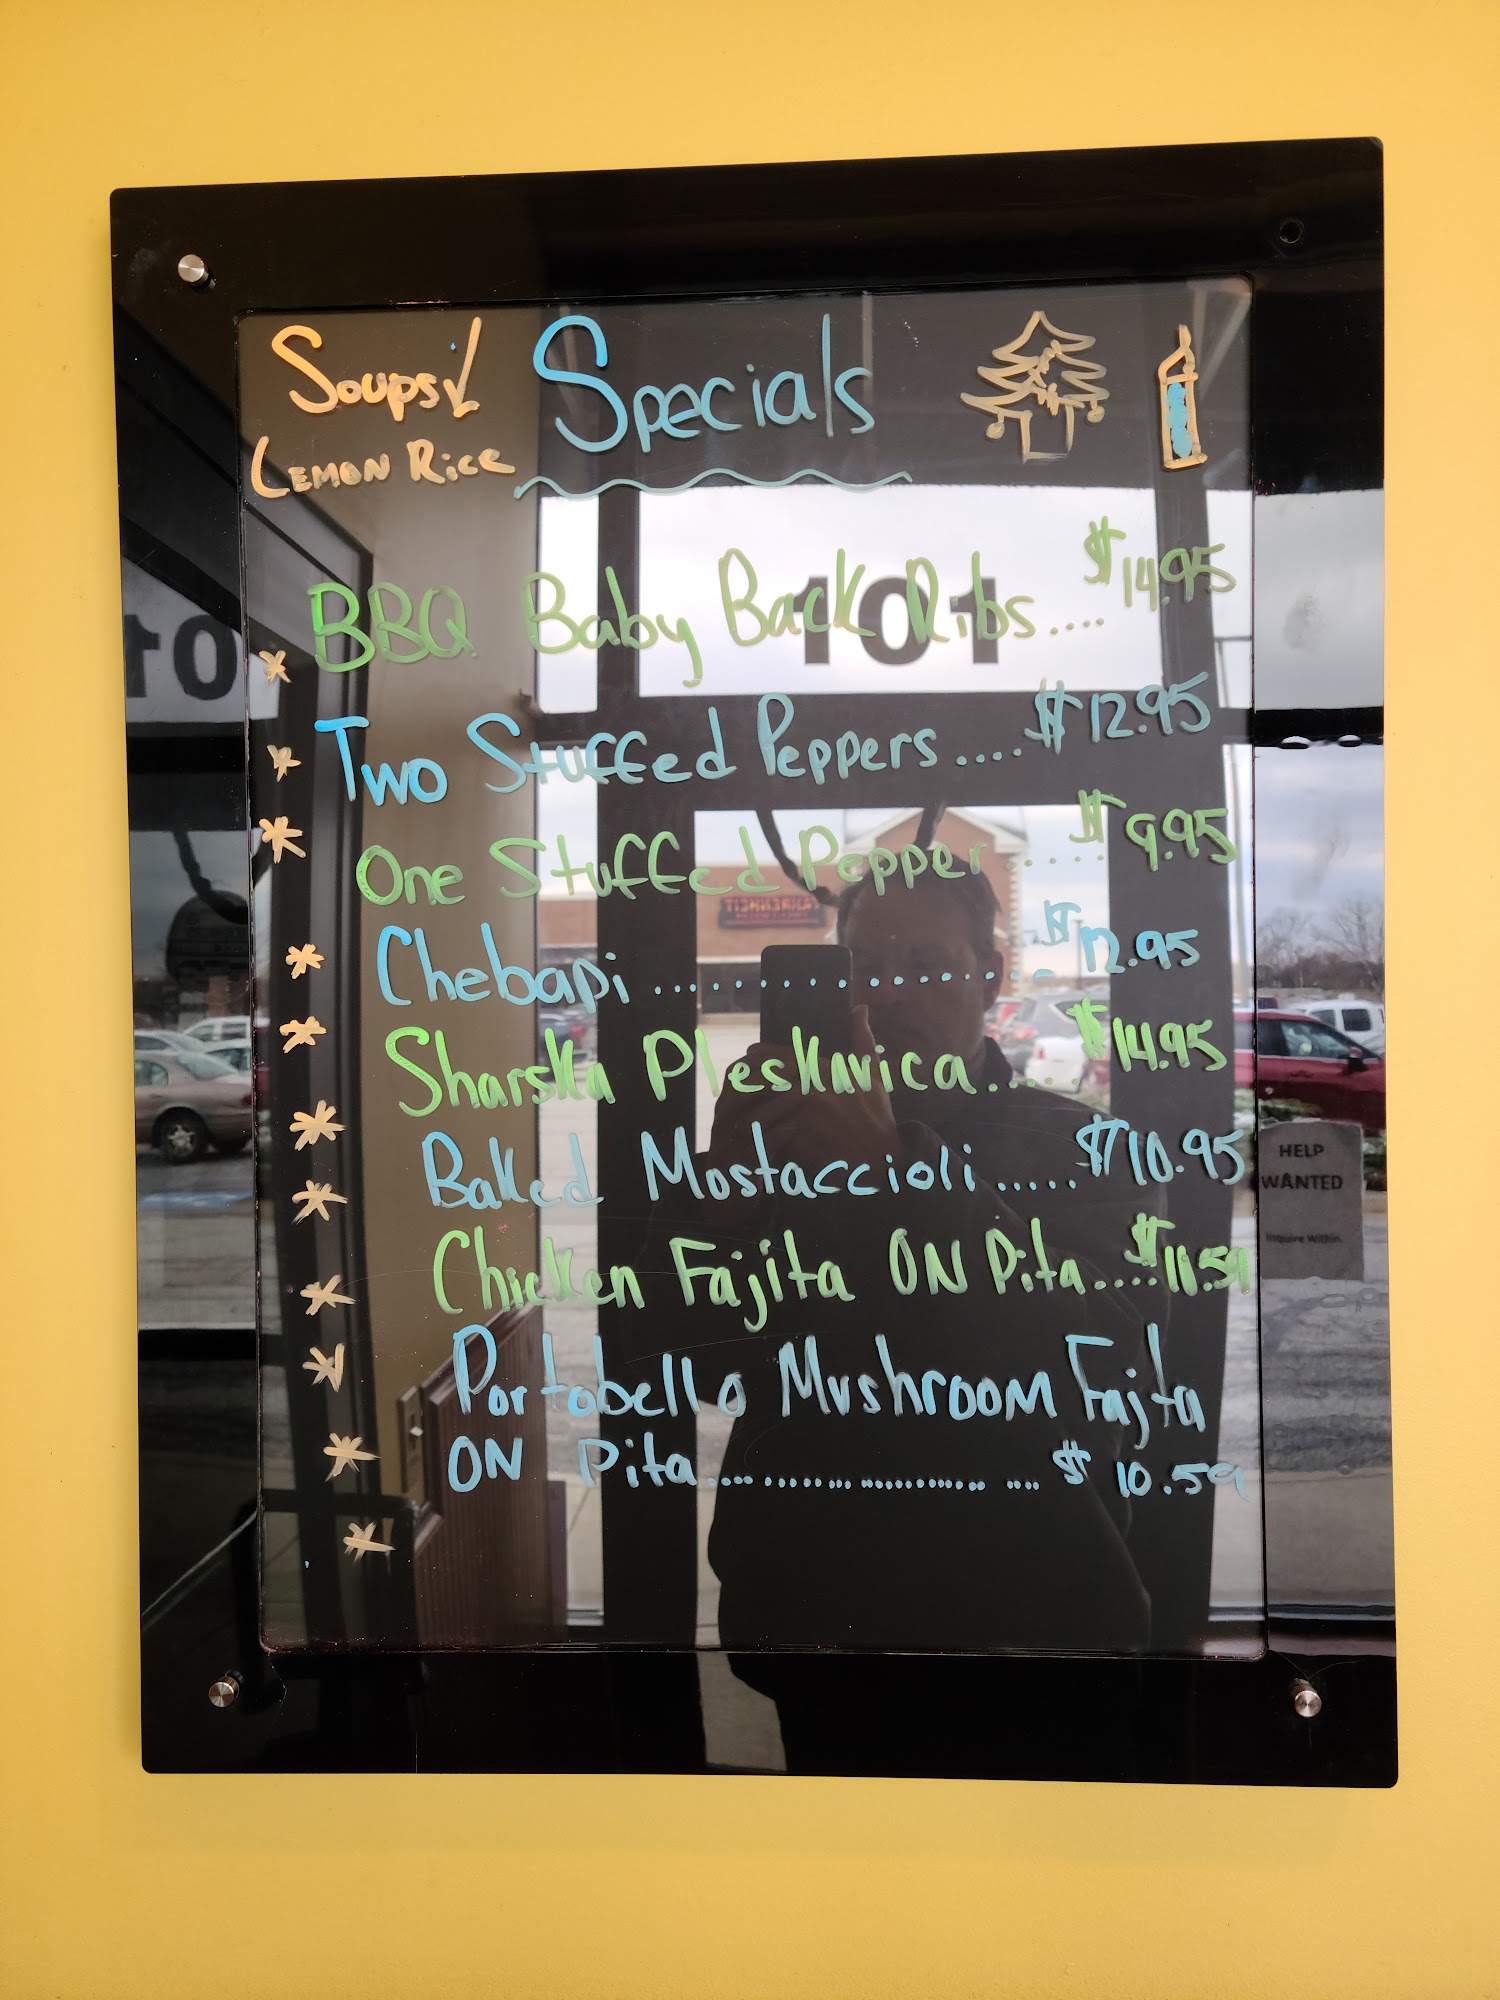 Soups!
Specials
Lemon Rice
BBQ Baby Back Ribs.... $14.95
101
101
Two Stuffed Peppers.... $12.95
One Stuffed Pepper..... $9.95
Chebapi .................. $12.95
Sharska Pleskavica..... $14.95
Baked Mostaccioli.....$10.95
HELP
WANTED
Inquire Within.
Chicken Fajita ON Pita....$11.59
Portobello Mushroom Fajita
ON Pita........................... $10.59